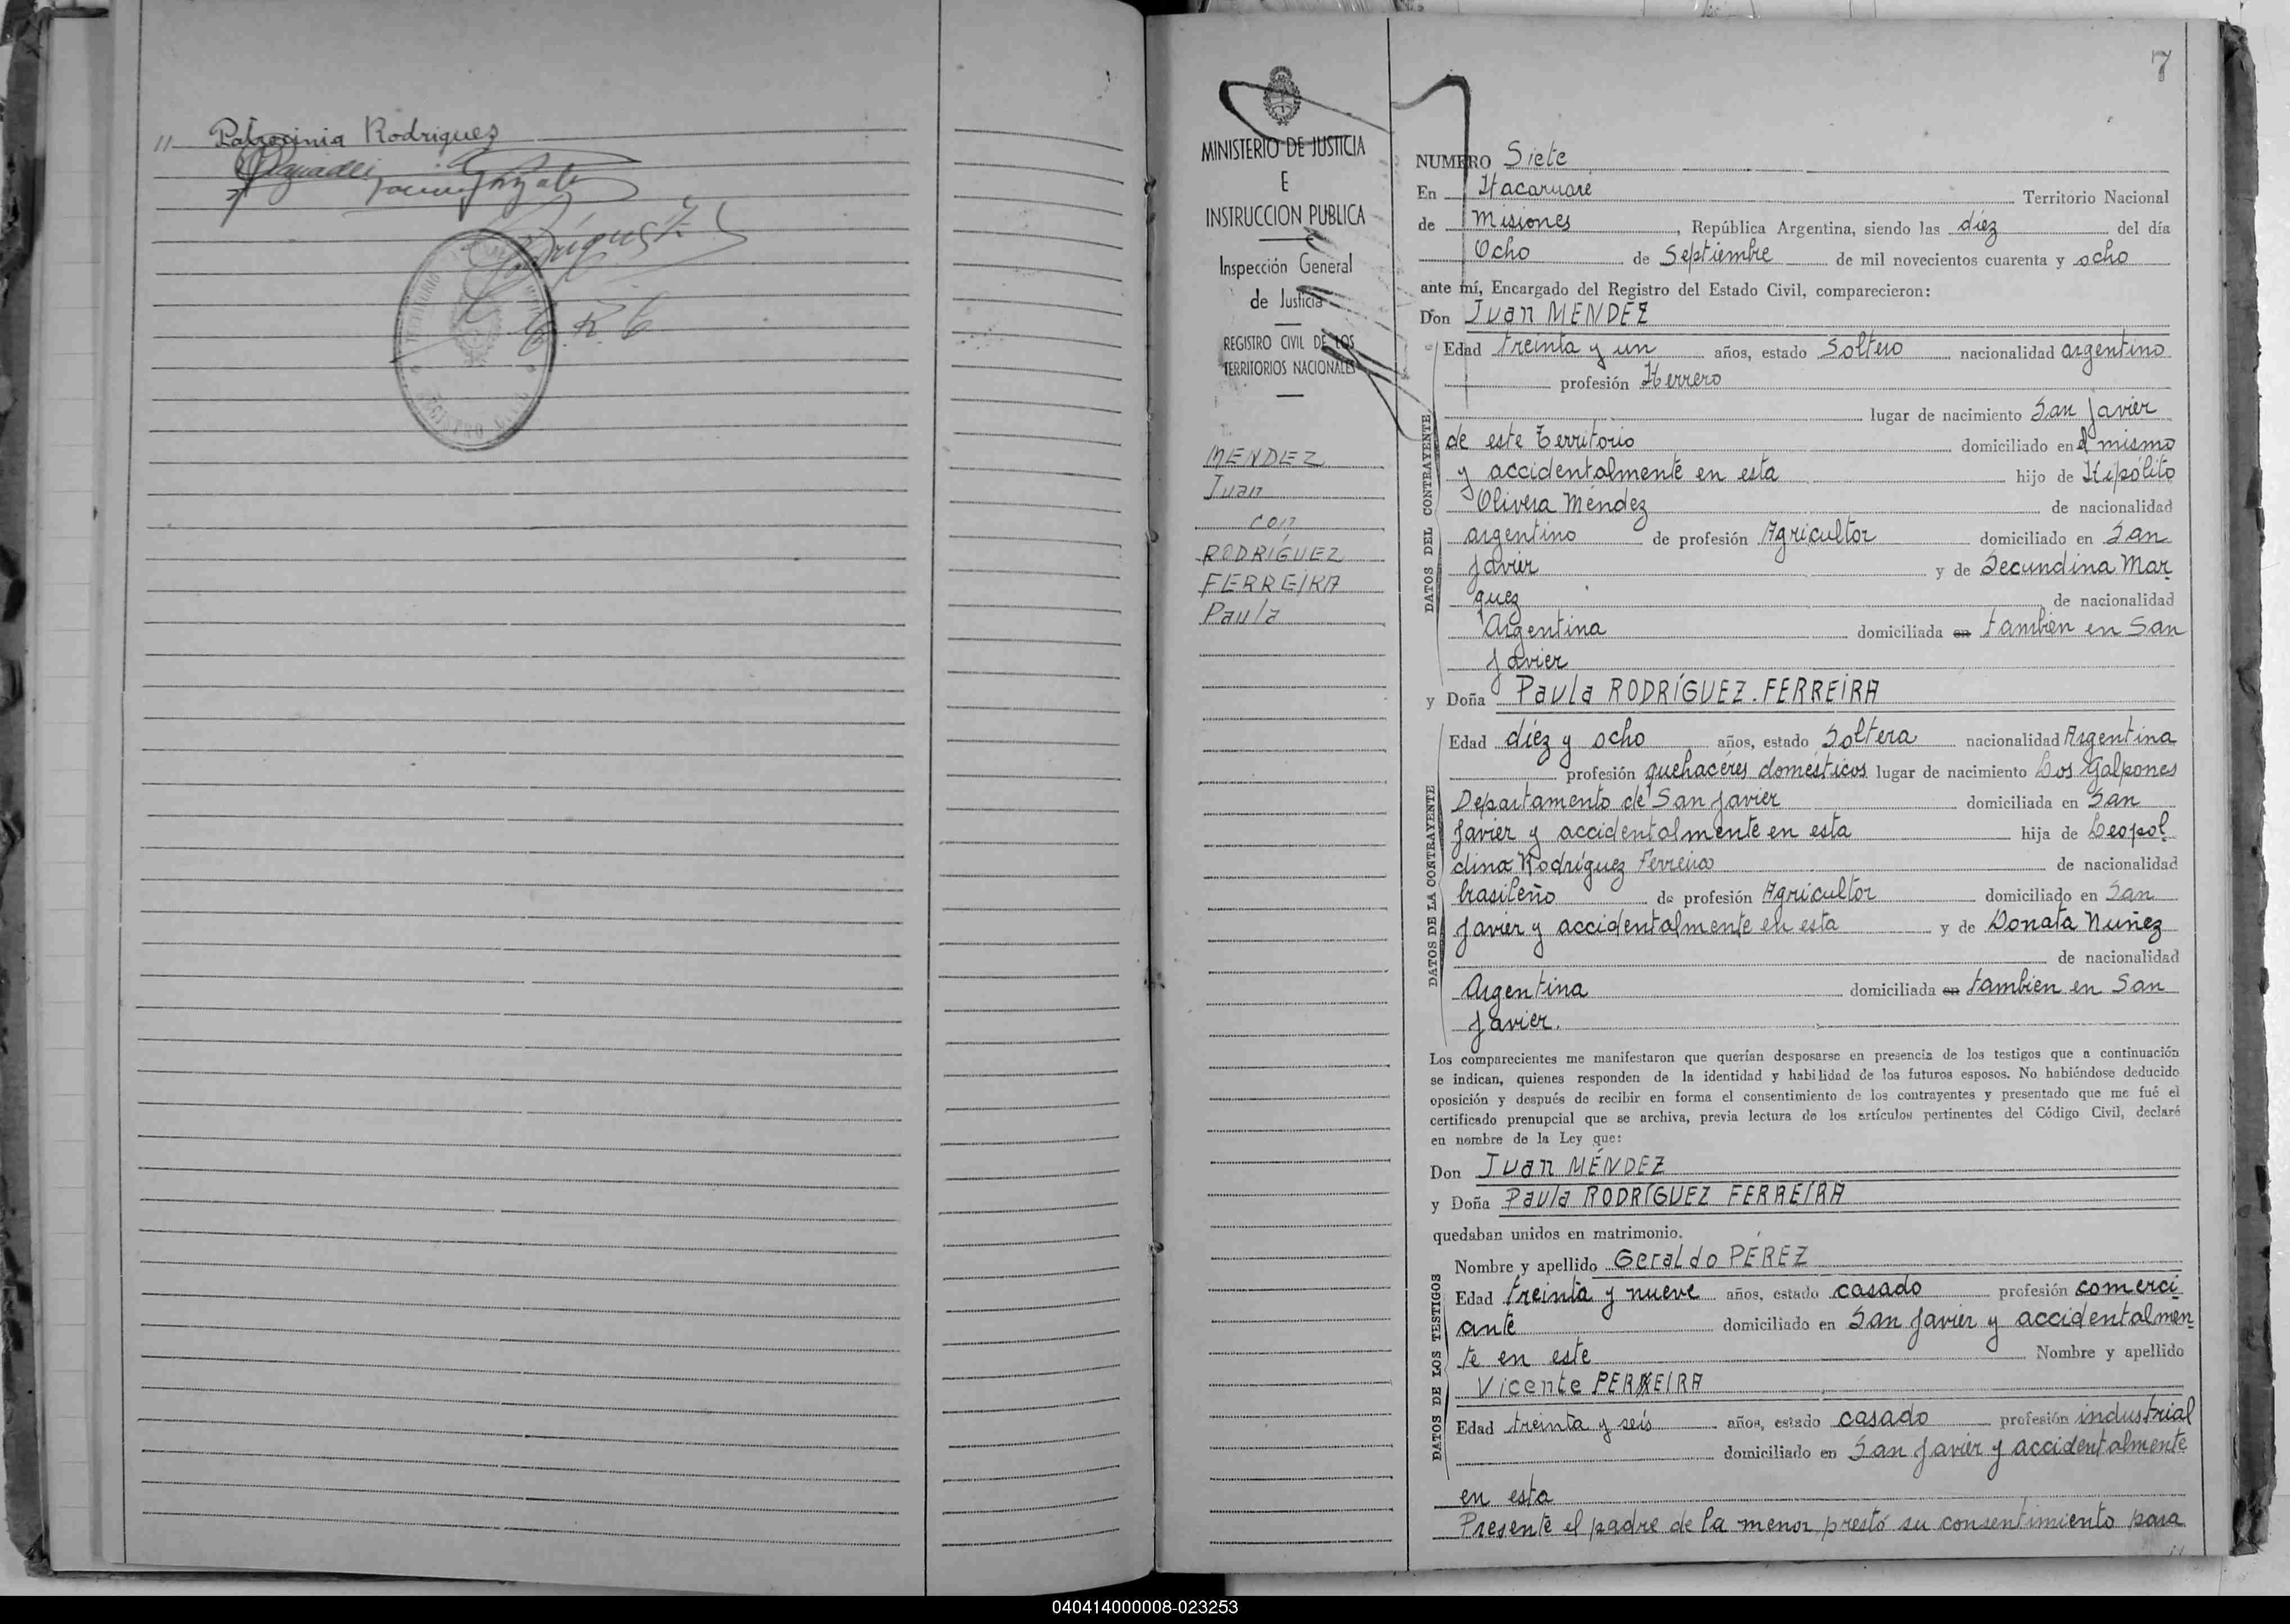 11 Patrocinia Rodriguez
7
MINISTERIO DE JUSTICIA
E
INSTRUCCION PUBLICA
Inspección General
de Justicia
REGISTRO CIVIL DE LOS
TERRITORIOS NACIONALES
MENDEZ
Juan
con
RODRÍGUEZ
FERREIRA
Paula
NUMERO Siete
En Itacaruaré Territorio Nacional
de Misiones, República Argentina, siendo las diéz del día
Ocho de Septiembre de mil novecientos cuarenta y ocho
ante mí, Encargado del Registro del Estado Civil, comparecieron:
Don Juan MENDEZ
DATOS DEL CONTRAYENTE
Edad treinta y un años, estado Soltero nacionalidad argentino
profesión Herrero
lugar de nacimiento San Javier
de este Territorio domiciliado en el mismo
y accidentalmente en esta hijo de Hipólito
Olivera Méndez de nacionalidad
argentino de profesión Agricultor domiciliado en San
Javier y de Secundina Mar
quez de nacionalidad
Argentina domiciliada en tambien en San
Javier
y Doña Paula RODRÍGUEZ-FERREIRA
DATOS DE LA CONTRAYENTE
Edad diéz y ocho años, estado Soltera nacionalidad Argentina
profesión quehaceres domésticos lugar de nacimiento Los Galpones
Departamento de San Javier domiciliada en San
Javier y accidentalmente en esta hija de Leopol
dino Rodríguez Ferreira de nacionalidad
brasileño de profesión Agricultor domiciliado en San
Javier y accidentalmente en esta y de Donata Nuñez
de nacionalidad
Argentina domiciliada en tambien en San
Javier.
Los comparecientes me manifestaron que querían desposarse en presencia de los testigos que a continuación
se indican, quienes responden de la identidad y habilidad de los futuros esposos. No habiéndose deducido
oposición y después de recibir en forma el consentimiento de los contrayentes y presentado que me fué el
certificado prenupcial que se archiva, previa lectura de los artículos pertinentes del Código Civil, declaré
en nombre de la Ley que:
Don Juan MÉNDEZ
y Doña Paula RODRÍGUEZ FERREIRA
quedaban unidos en matrimonio.
DATOS DE LOS TESTIGOS
Nombre y apellido Geraldo PÉREZ
Edad treinta y nueve años, estado casado profesión comerci
ante domiciliado en San Javier y accidentalmen
te en este Nombre y apellido
Vicente PEREIRA
Edad treinta y seis años, estado casado profesión industrial
domiciliado en San Javier y accidentalmente
en esta
Presente el padre de la menor prestó su consentimiento para
040414000008-023253